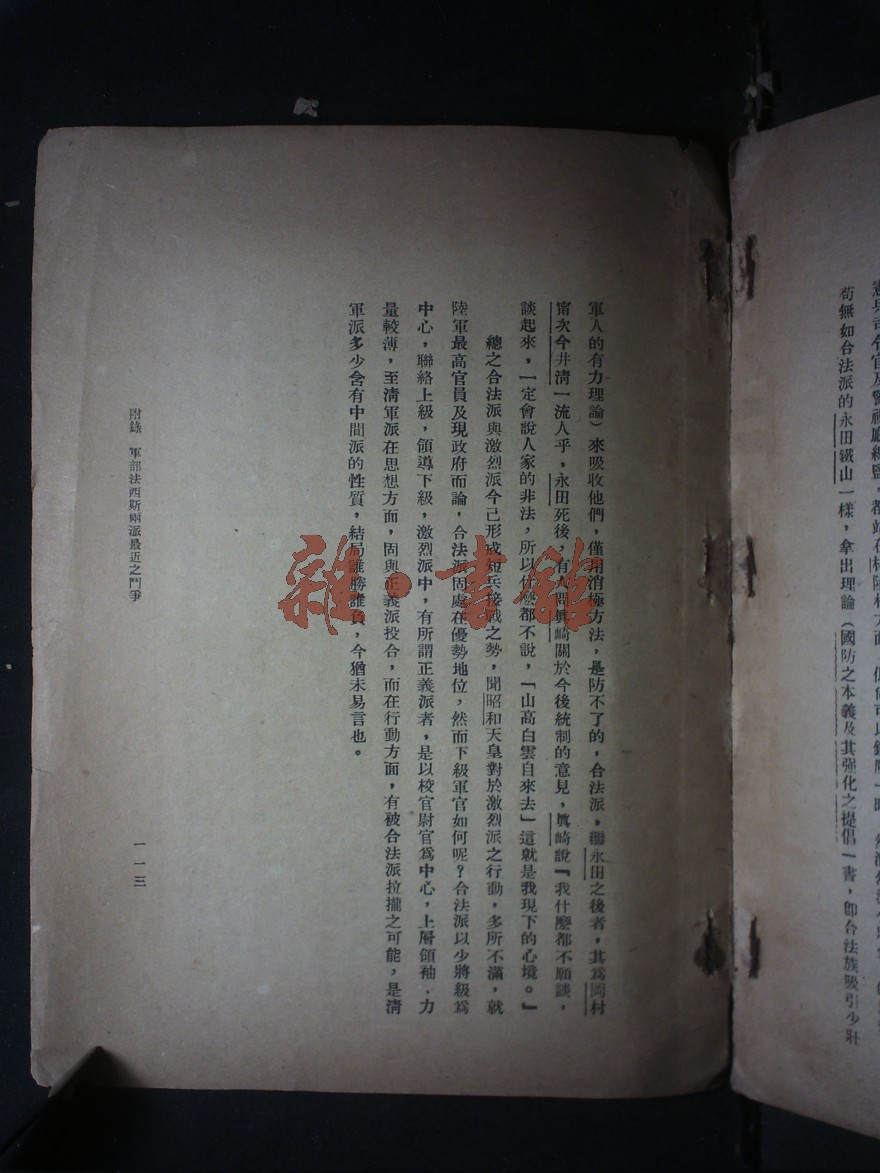 苟無如合法派的永田鐵山一樣，拿出理論（國防之本義及其強化之提倡一書，卽合法族吸引少壯
軍人的有力理論）來吸收他們，僅用消極方法，是防不了的，合法派，繼永田之後者，其爲岡村
甯次今井淸一流人乎，永田死後，有人問眞崎關於今後統制的意見，眞崎說『我什麼都不願談，
談起來，一定會說人家的非法，所以什麼都不說，「山高白雲自來去」這就是我現下的心境。』
總之合法派與激烈派今已形成短兵接戰之勢，聞昭和天皇對於激烈派之行動，多所不滿，就
陸軍最高官員及現政府而論，合法派固處在優勢地位，然而下級軍官如何呢？合法派以少將級爲
中心，聯絡上級，領導下級，激烈派中，有所謂正義派者，是以校官尉官爲中心，上層領袖．力
量較薄，至淸軍派在思想方面，固與正義派投合，而在行動方面，有被合法派拉攏之可能，是淸
軍派多少含有中間派的性質，結局誰勝誰負，今猶未易言也。
附錄　軍部法西斯兩派最近之鬥爭
一一三
雜·書館